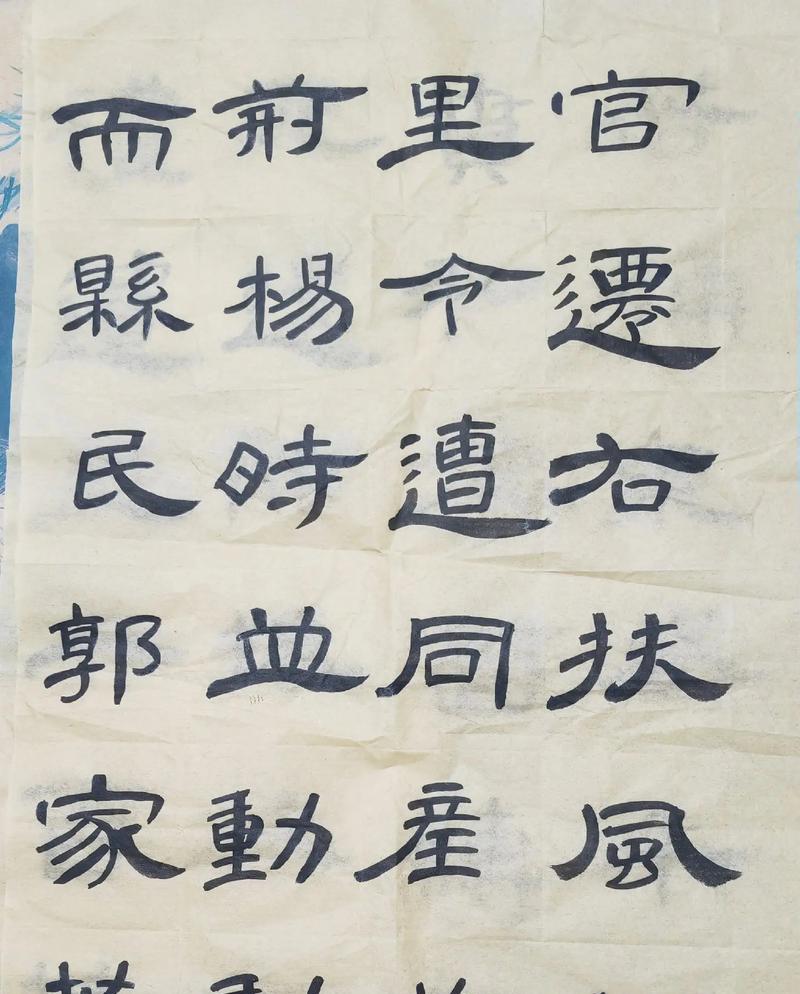 官遷右扶風
里令遭同産
荊楊時並動
而縣民郭家